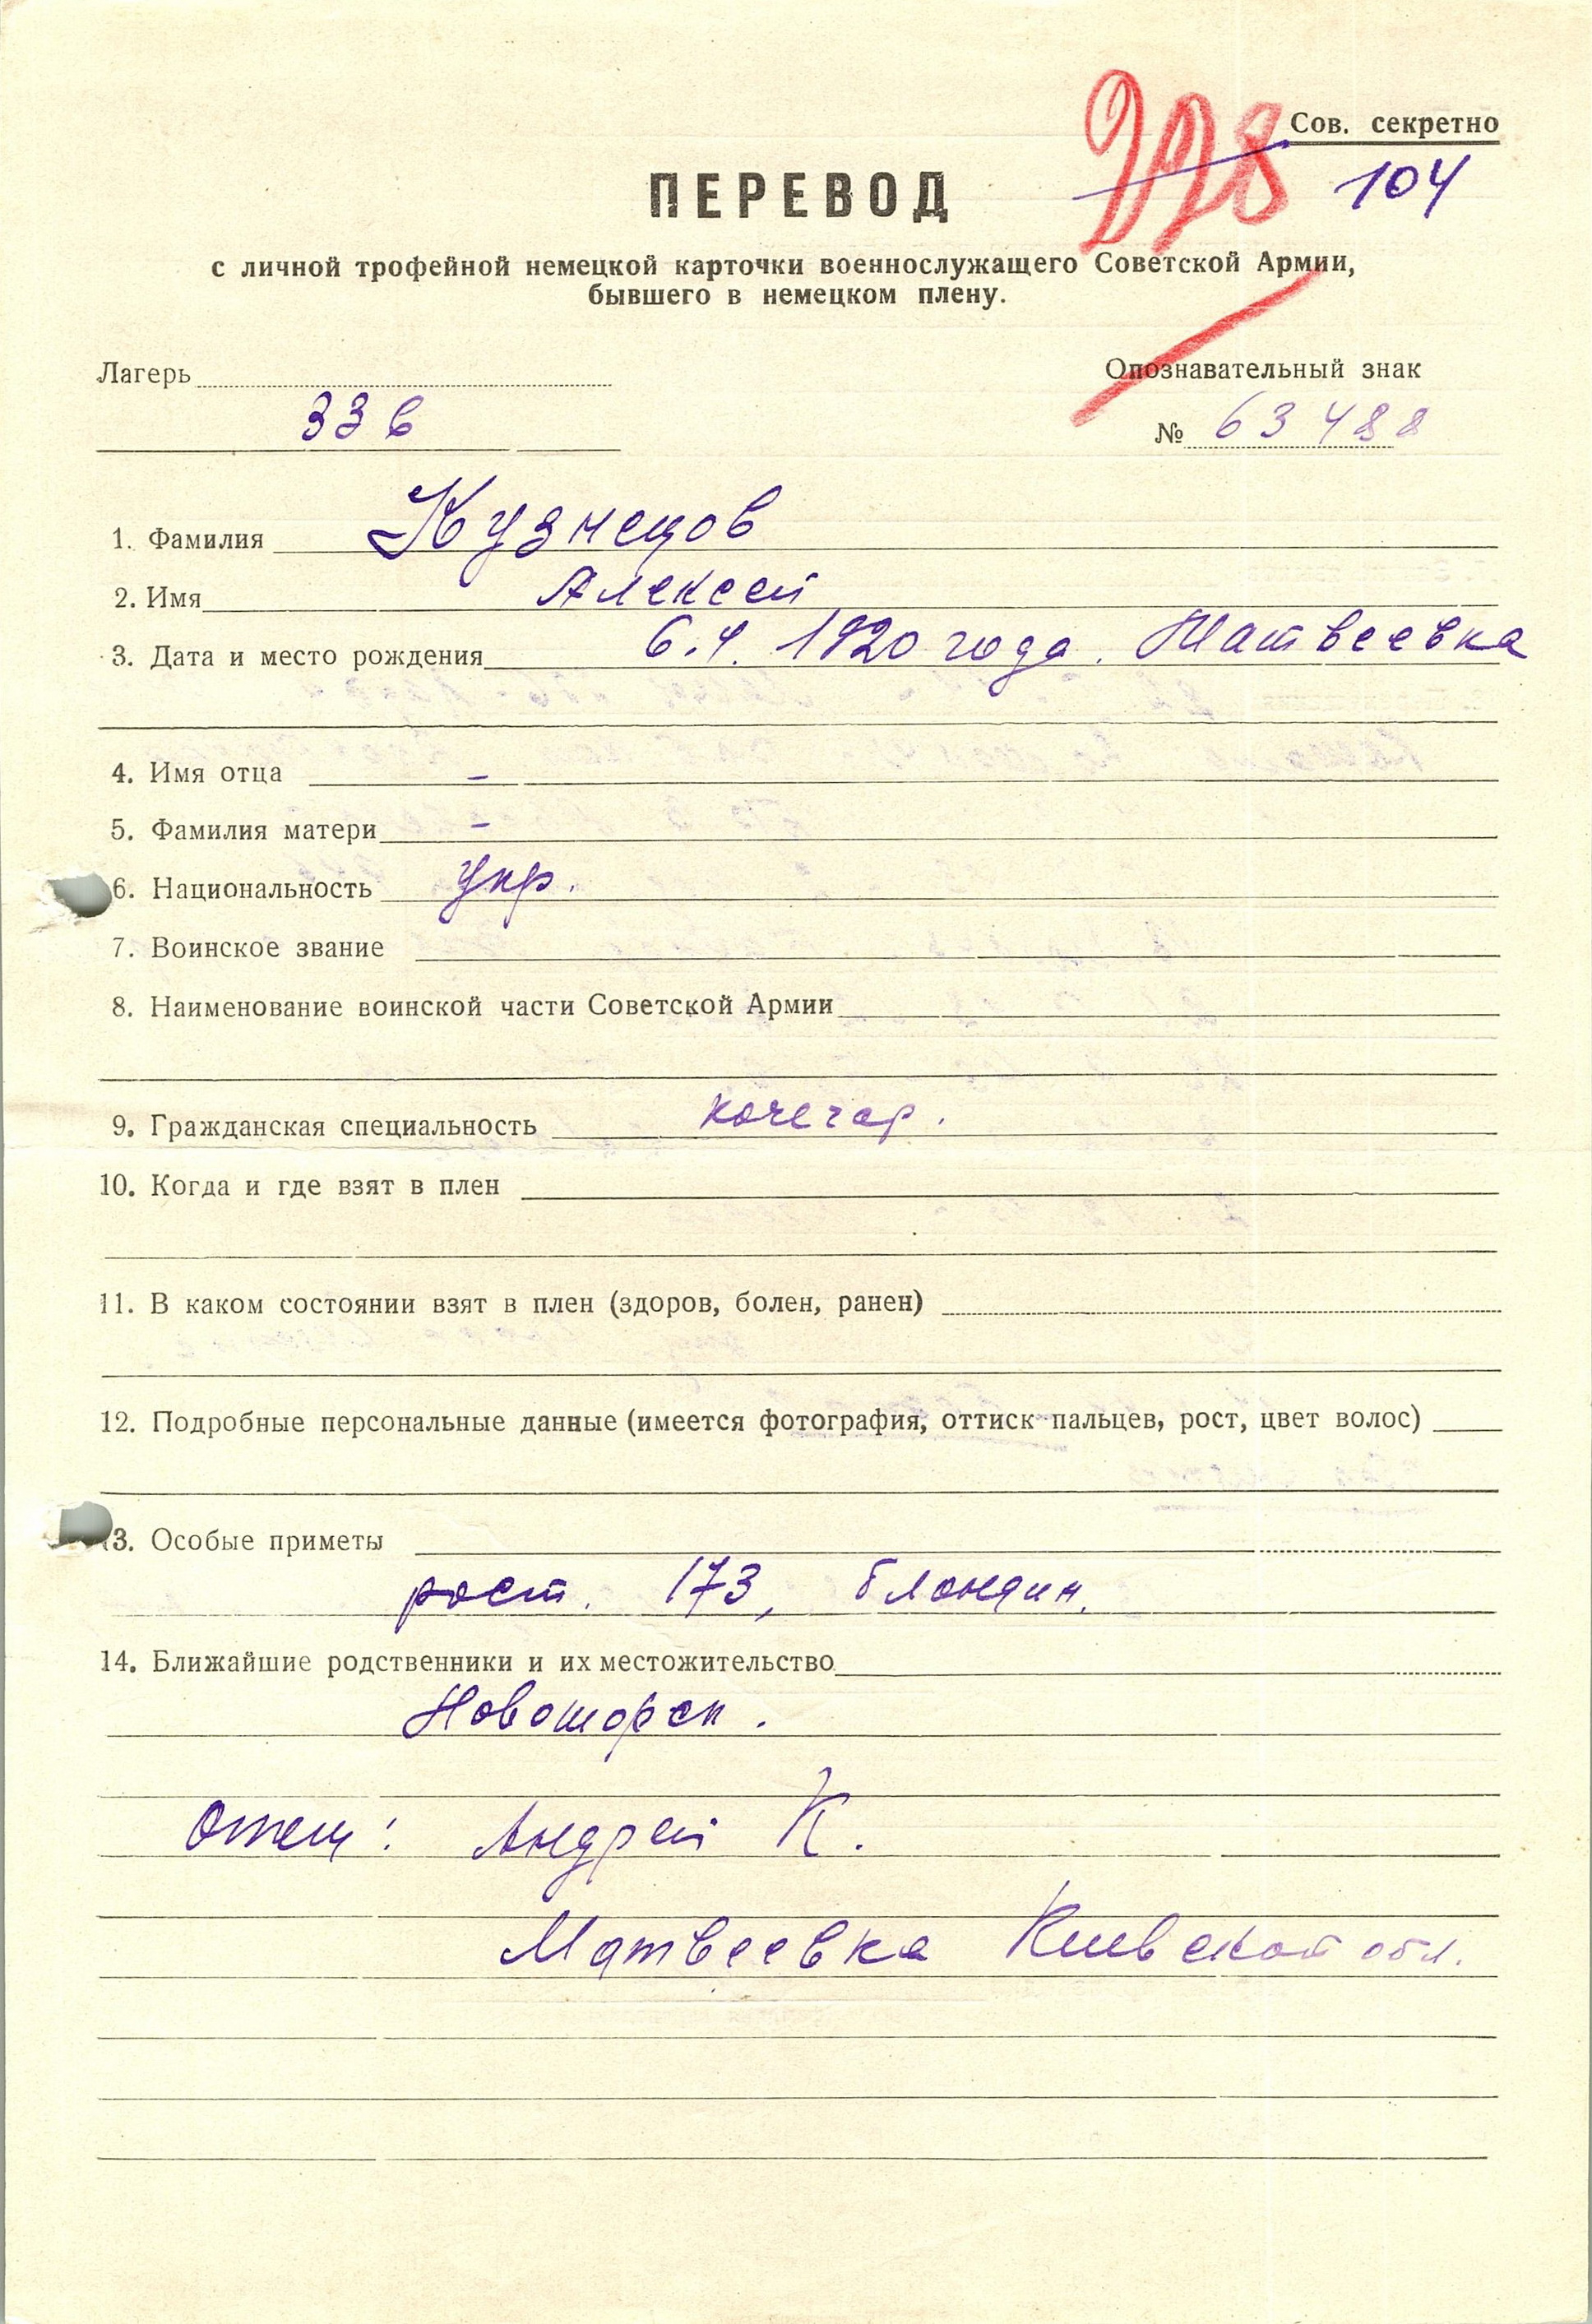 228
Сов. секретно
104
ПЕРЕВОД
с личной трофейной немецкой карточки военнослужащего Советской Армии,
бывшего в немецком плену.
Лагерь
Опознавательный знак
336
№ 63488
1. Фамилия Кузнецов
2. Имя Алексей
3. Дата и место рождения 6.4. 1920 года. Матвеевка
4. Имя отца –
5. Фамилия матери –
6. Национальность укр.
7. Воинское звание
8. Наименование воинской части Советской Армии
9. Гражданская специальность кочегар.
10. Когда и где взят в плен
11. В каком состоянии взят в плен (здоров, болен, ранен)
12. Подробные персональные данные (имеется фотография, оттиск пальцев, рост, цвет волос)
13. Особые приметы
рост. 173, блондин.
14. Ближайшие родственники и их местожительство
Отец: Андрей К.
Матвеевка Киевской обл.